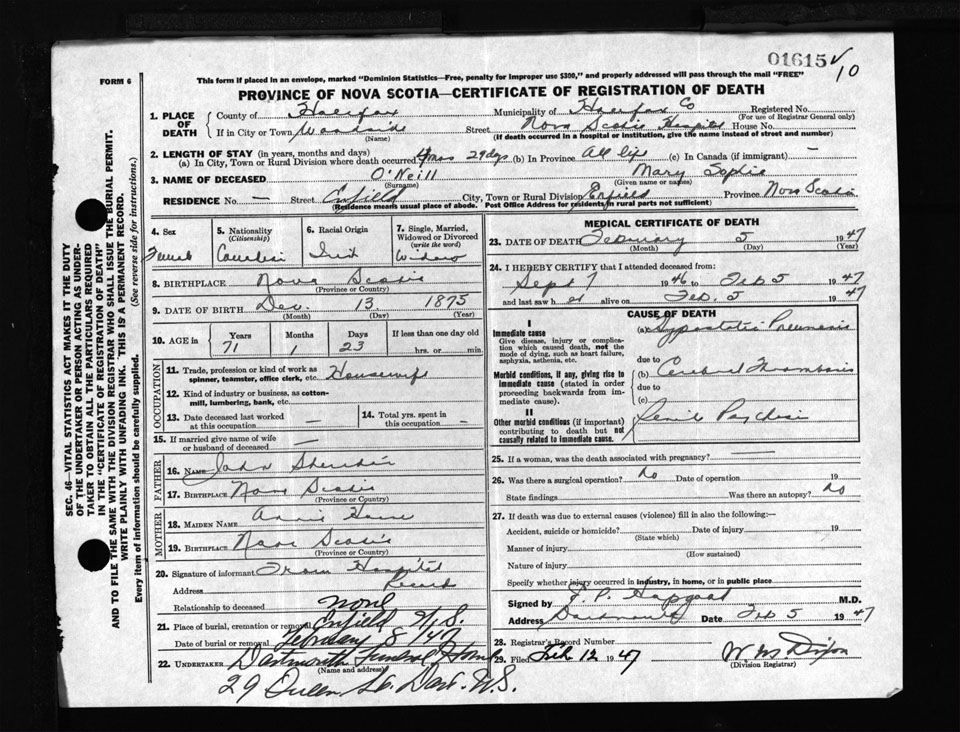 01615
10
FORM 6
This form if placed in an envelope, marked "Dominion Statistics—Free, penalty for improper use $300," and properly addressed will pass through the mail "FREE"
PROVINCE OF NOVA SCOTIA—CERTIFICATE OF REGISTRATION OF DEATH
1. PLACE OF DEATH County of Halifax Municipality of Halifax Co Registered No.
(For use of Registrar General only)
If in City or Town Woodside Street Nova Scotia Hospital House No.
(Name) (If death occurred in a hospital or institution, give the name instead of street and number)
2. LENGTH OF STAY (in years, months and days)
(a) In City, Town or Rural Division where death occurred mos 29 dys (b) In Province All life (c) In Canada (if immigrant) —
3. NAME OF DECEASED O'Neill Mary Sophie
(Surname) (Given name or names)
RESIDENCE No. — Street Enfield City, Town or Rural Division Enfield Province Nova Scotia
(Residence means usual place of abode. Post Office Address for residents in rural parts not sufficient)
4. Sex Female
5. Nationality (Citizenship) Canadian
6. Racial Origin Irish
7. Single, Married, Widowed or Divorced (write the word) Widow
8. BIRTHPLACE Nova Scotia
(Province or Country)
9. DATE OF BIRTH Dec. 13 1875
(Month) (Day) (Year)
10. AGE Years 71 Months 1 Days 23 If less than one day old hrs. or min.
OCCUPATION
11. Trade, profession or kind of work as spinner, teamster, office clerk, etc. Housewife
12. Kind of industry or business, as cotton-mill, lumbering, bank, etc.
13. Date deceased last worked at this occupation —
14. Total yrs. spent in this occupation —
15. If married give name of wife or husband of deceased —
FATHER
16. NAME John Sheridan
17. BIRTHPLACE Nova Scotia
(Province or Country)
MOTHER
18. MAIDEN NAME Annie
19. BIRTHPLACE Nova Scotia
(Province or Country)
20. Signature of informant From Hospital
Address Record
Relationship to deceased none
21. Place of burial, cremation or removal Enfield N.S.
Date of burial or removal February 8/47
22. UNDERTAKER Dartmouth Funeral Home
(Name and address)
29 Queen St. Dart. N.S.
MEDICAL CERTIFICATE OF DEATH
23. DATE OF DEATH February 5 1947
(Month) (Day) (Year)
24. I HEREBY CERTIFY that I attended deceased from:
Sept 7 1946 to Feb 5 1947
and last saw h er alive on Feb. 5 1947
CAUSE OF DEATH
I
Immediate cause (a) Hypostatic Pneumonia
Give disease, injury or complication which caused death, not the mode of dying, such as heart failure, asphyxia, asthenia, etc.
due to
Morbid conditions, if any, giving rise to immediate cause (stated in order proceeding backwards from immediate cause). (b) Cerebral Thrombosis
due to
(c)
II
Other morbid conditions (if important) contributing to death but not causally related to immediate cause. Senile Psychosis
25. If a woman, was the death associated with pregnancy? —
26. Was there a surgical operation? No Date of operation 19
State findings Was there an autopsy? No
27. If death was due to external causes (violence) fill in also the following:—
Accident, suicide or homicide? Date of injury 19
(State which)
Manner of injury
(How sustained)
Nature of injury
Specify whether injury occurred in industry, in home, or in public place
Signed by J. P. Hapgood M.D.
Address Dartmouth Date Feb 5 1947
28. Registrar's Record Number
29. Filed Feb 12 1947 W M Dixon
(Division Registrar)
SEC. 46—VITAL STATISTICS ACT MAKES IT THE DUTY
OF THE UNDERTAKER OR PERSON ACTING AS UNDERTAKER TO OBTAIN ALL THE PARTICULARS REQUIRED
IN THE "CERTIFICATE OF REGISTRATION OF DEATH"
AND TO FILE THE SAME WITH THE DIVISION REGISTRAR WHO SHALL ISSUE THE BURIAL PERMIT.
WRITE PLAINLY WITH UNFADING INK. THIS IS A PERMANENT RECORD.
Every item of information should be carefully supplied. (See reverse side for instructions.)